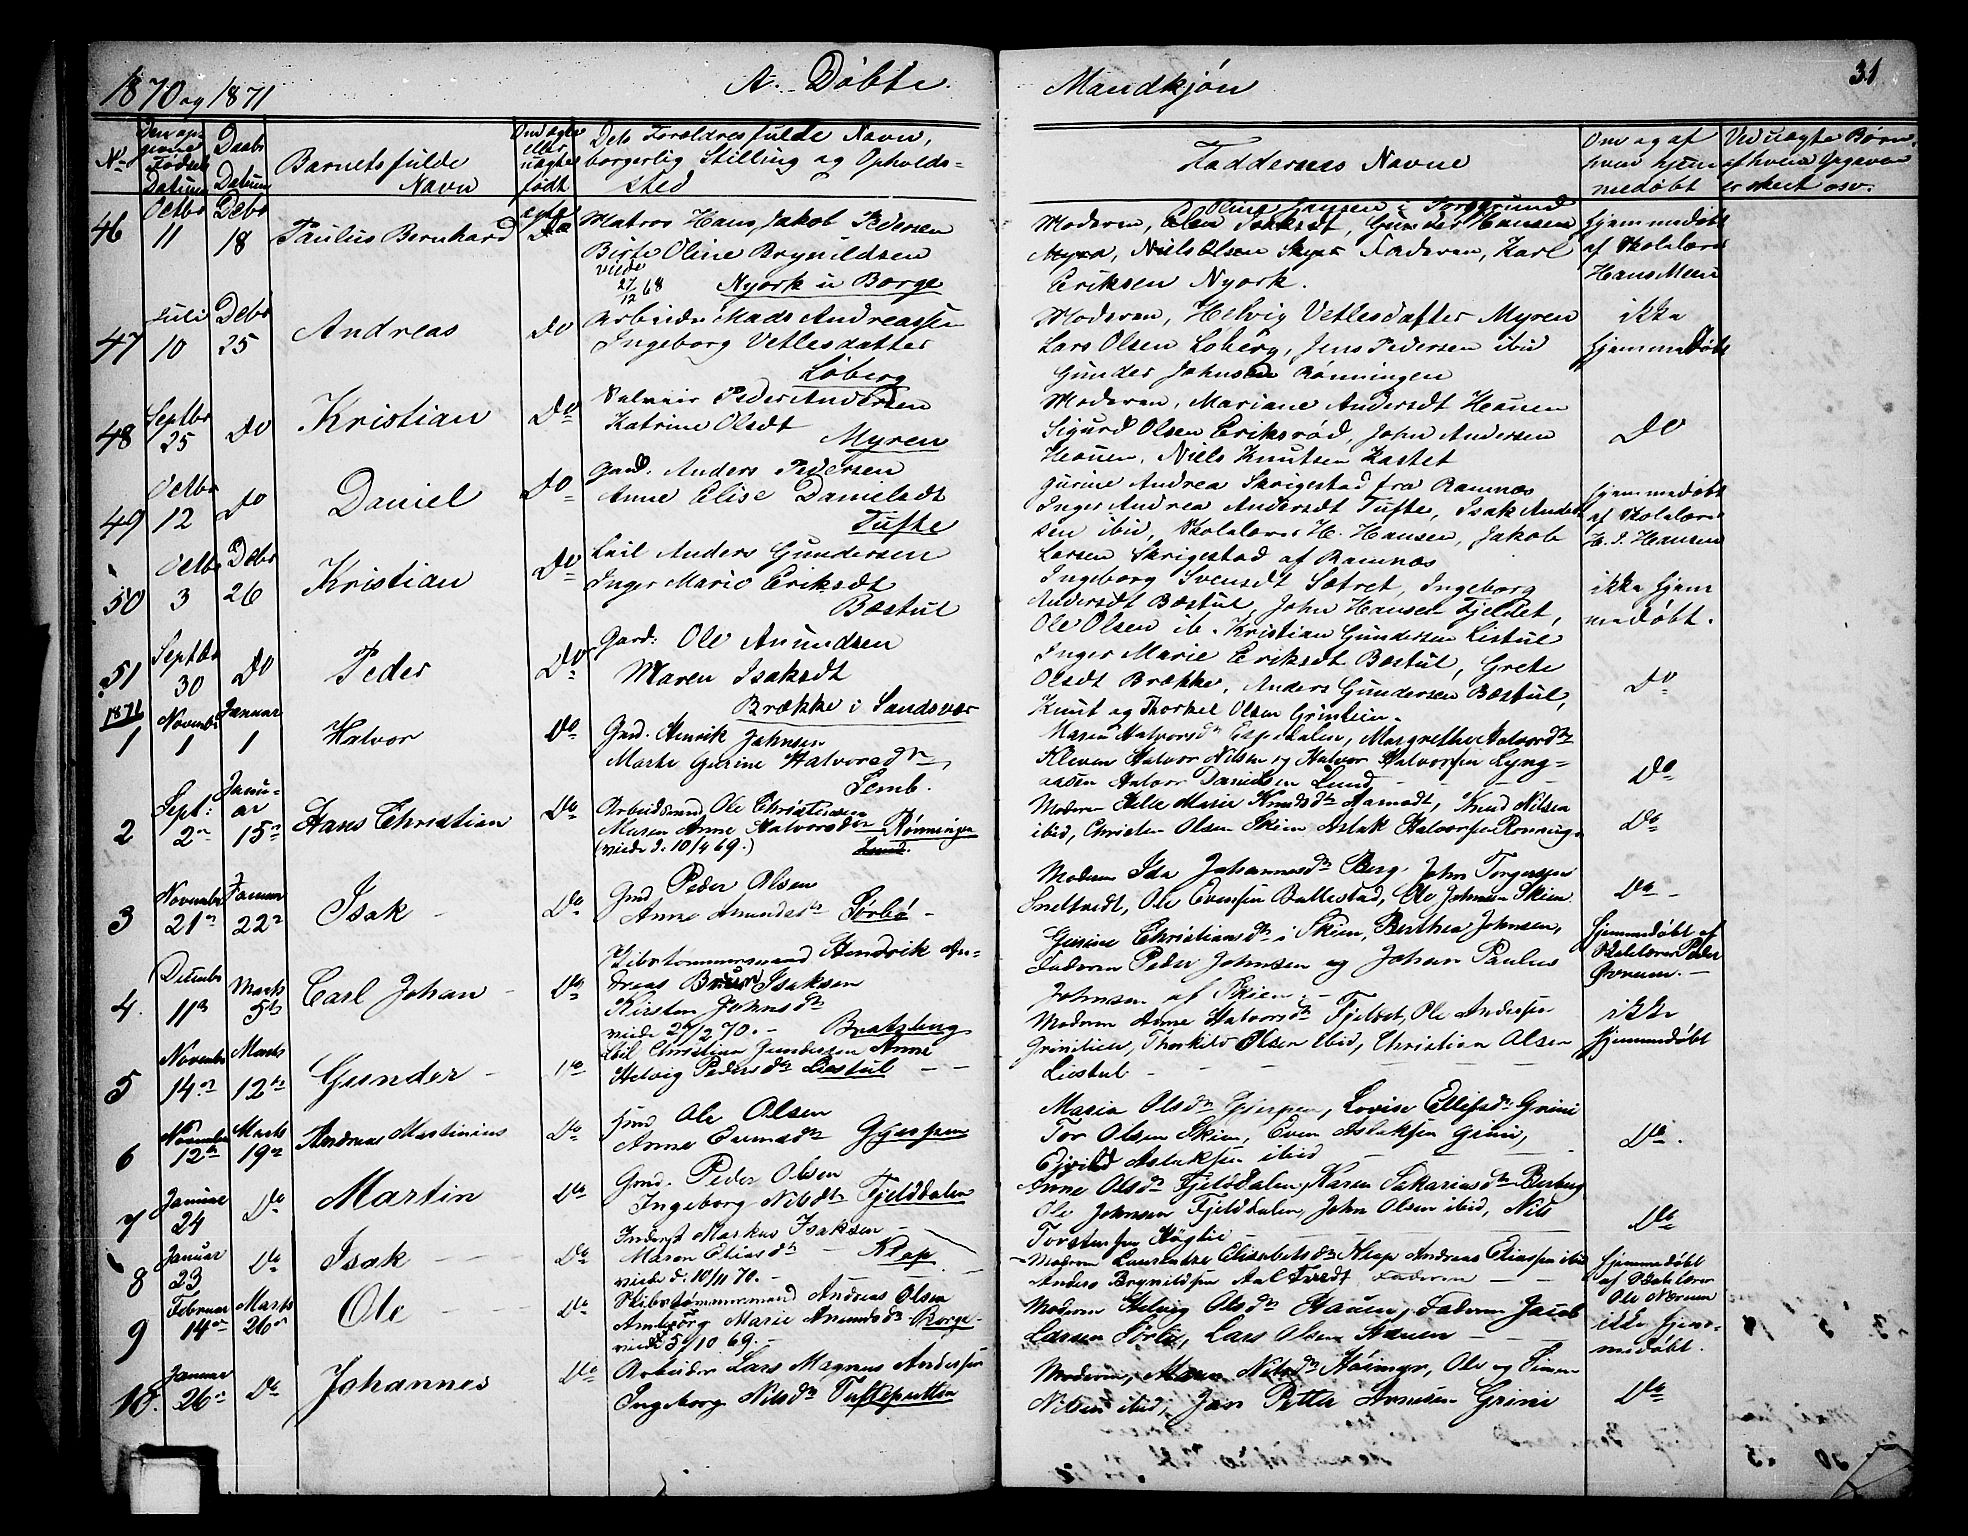 1870 og 1871 A. Døbte. Mandkjøn 31
No Den opgivne Fødsels Datum Daabs Datum Barnets fulde Navn Om ægte eller uægte født Dets Forældres fulde Navn, borgerlig Stilling og Opholdssted Faddernes Navne Om og af hvem hjemmedøbt Ved uægte Børn, af hvem Opgaven er skeet osv.
46 Octbr 11 Debr 18 Paulus Bernhard ægte Do
Matros Hans Jakob Pedersen
Birte Oline Brynildsen
viede 27/12 68 Nyork i Borge
Moderen, Gunder Hansen
Niels Olsen Faderen, Karl
Eriksen Nyork.
Hjemmedøbt
af Skolelærer
Hans Moen
47 Juli 10 Debr 25 Andreas Do
Arbeider Mads Andreassen
Ingeborg Vetlesdatter
Løberg
Moderen, Helvig Vetlesdatter Myren
Lars Olsen Løberg, Jens Pedersen ibid
Gunder Johnsen Rønningen
ikke
hjemmedøbt
48 Septbr 25 Do Kristian Do
Peder Andersen
Katrine Olsdt
Myren
Moderen, Mariane Andersdt Hauen
Sigurd Olsen Eriksrød, John Andersen
Hauen, Niels Knutsen Kastet
Do
49 Octbr 12 Do Daniel Do
Gaad. Anders Pedersen
Anne Elise Danielsdt
Tufte
Gurine Andrea Skrigestad fra Ramnæs
Inger Andrea Andersdt Tufte, Isak Ander
sen ibid, Skolelærer H. Hansen, Jakob
Larsen Skrigestad af Ramnæs
hjemmedøbt
af Skolelærer
H. J. Hansen
50 Octbr 3 Debr 26 Kristian Do
Leil Anders Gundersen
Inger Marie Eriksdt
Bæstul
Ingeborg Svensdt Sætret, Ingeborg
Andersdt Bæstul, John Hansen Fjeldet,
Ole Olsen ib. Kristian Gundersen Listul
ikke hjem
medøbt.
51 Septbr 30 Do Peder Do
Gard: Ole Amundsen
Maren Isaksdt
Brække i Sandsvær
Inger Marie Eriksdt Bæstul, Grete
Olsdt Brække, Anders Gundersen Bæstul,
Knut og Thorkel Olsen Grinilien
Do
1871
1 Novembr 1 Januar 1 Halvor Do
Gard. Henrik Johnsen
Marte Gurine Halvorsdtr
Semb.
Maren Halvorsdtr Espedalen, Margrethe Halvorsdtr
Kleven Halvor Nilsen og Halvor Halvorsen Lyng-
aasen Halvor Danielsen Lund
Do
2 Sept: 2n Januar 15n Hans Christian Do
Arbeidsmand Ole Christensen
Maren Anne Halvorsdtr Rønningen
(viede d. 10/4 69.)
Moderen Helle Marie Knudsdtr Aarnodt, Knud Nilsen
ibid, Christen Olsen Skien, Aslak Halvorsen Rønning
Do
3 Novembr 21n Januar 22n Isak Do
Gmd Peder Olsen
Anne Amundsdtr Sørbø
Moderen Ida Johannesdtr Berg, John Torgersen
Sneltvedt, Ole Evensen Ballestad, Ole Johnsen Skien
Do
4. Decembr 11n Marts 5te Carl Johan Do
Skibstømmermand Hendrik An-
dreas Bruun Isaksen
Kirsten Johnsdtr
viede 26/2 70. Bratsberg
Gurine Christiansdtr i Skien, Berthea Johnsen,
Faderen Peder Johnsen og Johan Paulus
Johnsen af Skien
Hjemmedøbt af
Skolelærer Peder
Øvrum.
5 Novembr 14n Marts 12te Gunder Do
Leil Christian Gundersen Anne
Helvig Pedersdtr Liestul
Moderen Anne Halvorsdtr Fjeldet, Ole Andersen
Grinilien, Thorkild Olsen ibid, Christian Olsen
Liestul
ikke
Hjemmedøbt
6 November 12te Marts 19n Andreas Martinius Do
Gmd Ole Olsen
Anne Evensdtr Gjerpen
Maria Olsdtr Gjerpen, Lovise Ellefsdtr Grini
Tor Olsen Skien, Even Aslaksen Grini,
Eivild Aslaksen ibid
Do.
7 Januar 24 Do Martin Do
Gmd. Peder Olsen
Ingeborg Nilsdtr Fjelddalen
Anne Olsdtr Fjelddalen, Karen Sakariasdtr Berberg
Ole Johnsen Fjelddalen, John Olsen ibid, Nils
Torstensen Høglie
Do
8 Januar 23 Do Isak Do
Inderst Markus Isaksen
Maren Eliasdtr Klep
viede d. 10/11 70.
Moderen Elisabetsdtr Klep Andreas Eliassen ibid
Anders Brynildsen Aaltvedt Faderen
hjemmedøbt
af Skolelærer
Ole Nærum
9 Februar 14n Marts 26n Ole Do
Skibstømmermand Andreas Olsen
Amborg Marie Amundsdtr Borge
viede 5/10 69.
Moderen Helvig Olsdtr Hauen, Faderen Jacob
Larsen Sørli, Lars Olsen Hauen
ikke hjem-
medøbt.
10. Januar 26n Do Johannes Do
Arbeider Lars Magnus Andersen
Ingeborg Nilsdtr Tufteputten
Moderen, Maren Nilsdtr Høimyr, Ole og Simen
Nilsen ibid, Jan Petter Arnesen Grini
Do